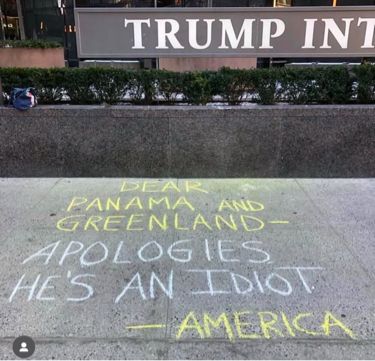 TRUMP INT
DEAR
PANAMA AND
GREENLAND—
APOLOGIES
HE'S AN IDIOT
— AMERICA